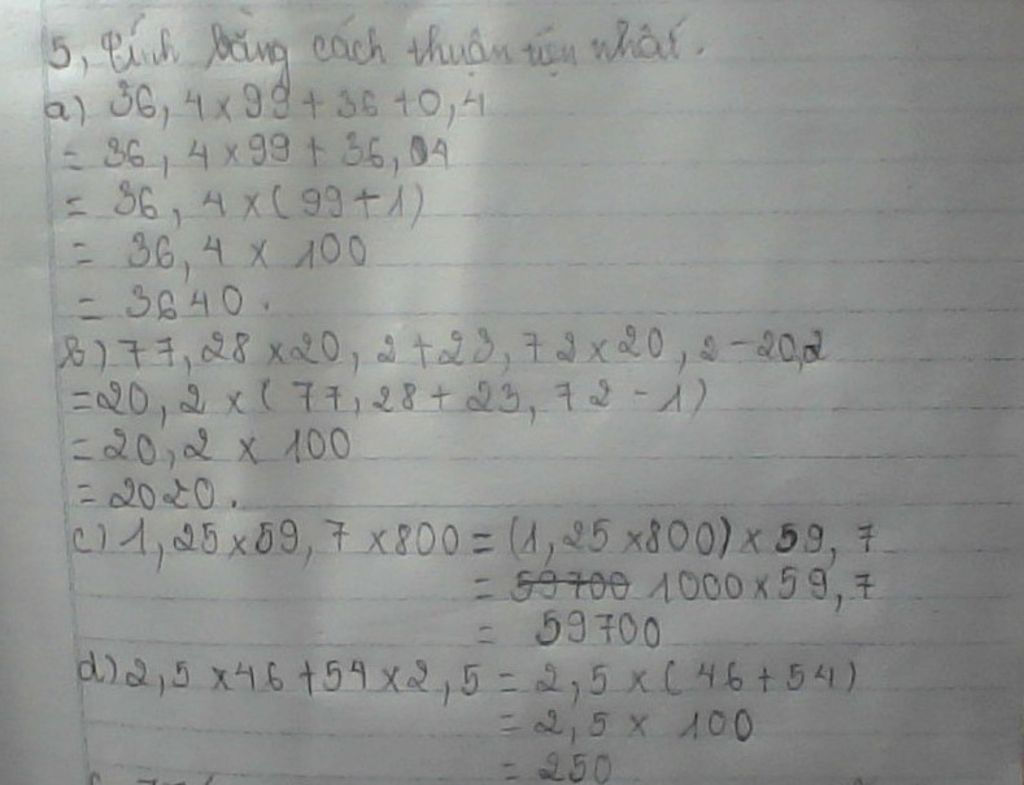 5, Tính bằng cách thuận tiện nhất.
a) 36,4 x 99 + 36 + 0,4
= 36,4 x 99 + 36,04
= 36,4 x ( 99 + 1)
= 36,4 x 100
= 3640.
b) 77,28 x 20,2 + 23,72 x 20,2 - 20,2
= 20,2 x ( 77,28 + 23,72 - 1)
= 20,2 x 100
= 2020.
c) 1,25 x 59,7 x 800 = (1,25 x 800) x 59,7
= 59700 1000 x 59,7
= 59700
d) 2,5 x 46 + 54 x 2,5 = 2,5 x ( 46 + 54)
= 2,5 x 100
= 250